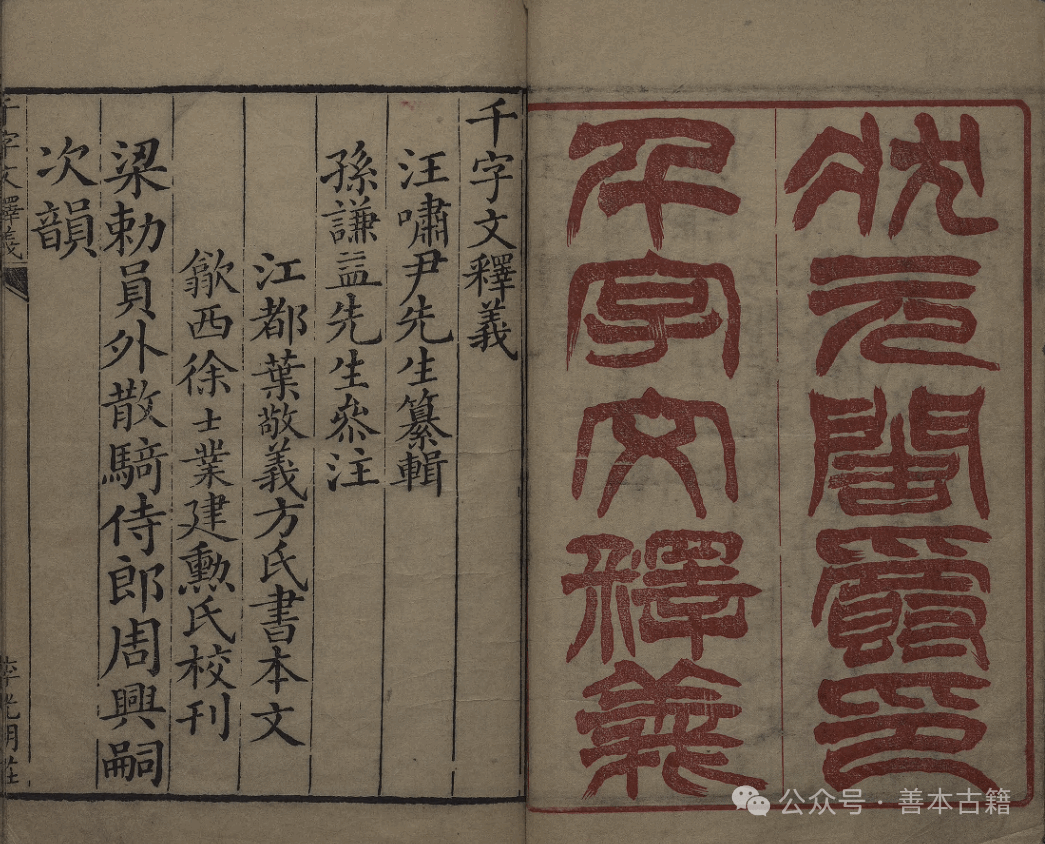 狀元閣爵印
千字文釋義
千字文釋義
汪嘯尹先生纂輯
孫謙益先生叅注
江都葉敬義方氏書本文
歙西徐士業建勳氏校刊
梁勅員外散騎侍郎周興嗣
次韻
千字文釋義
李光明莊
公众号 · 善本古籍